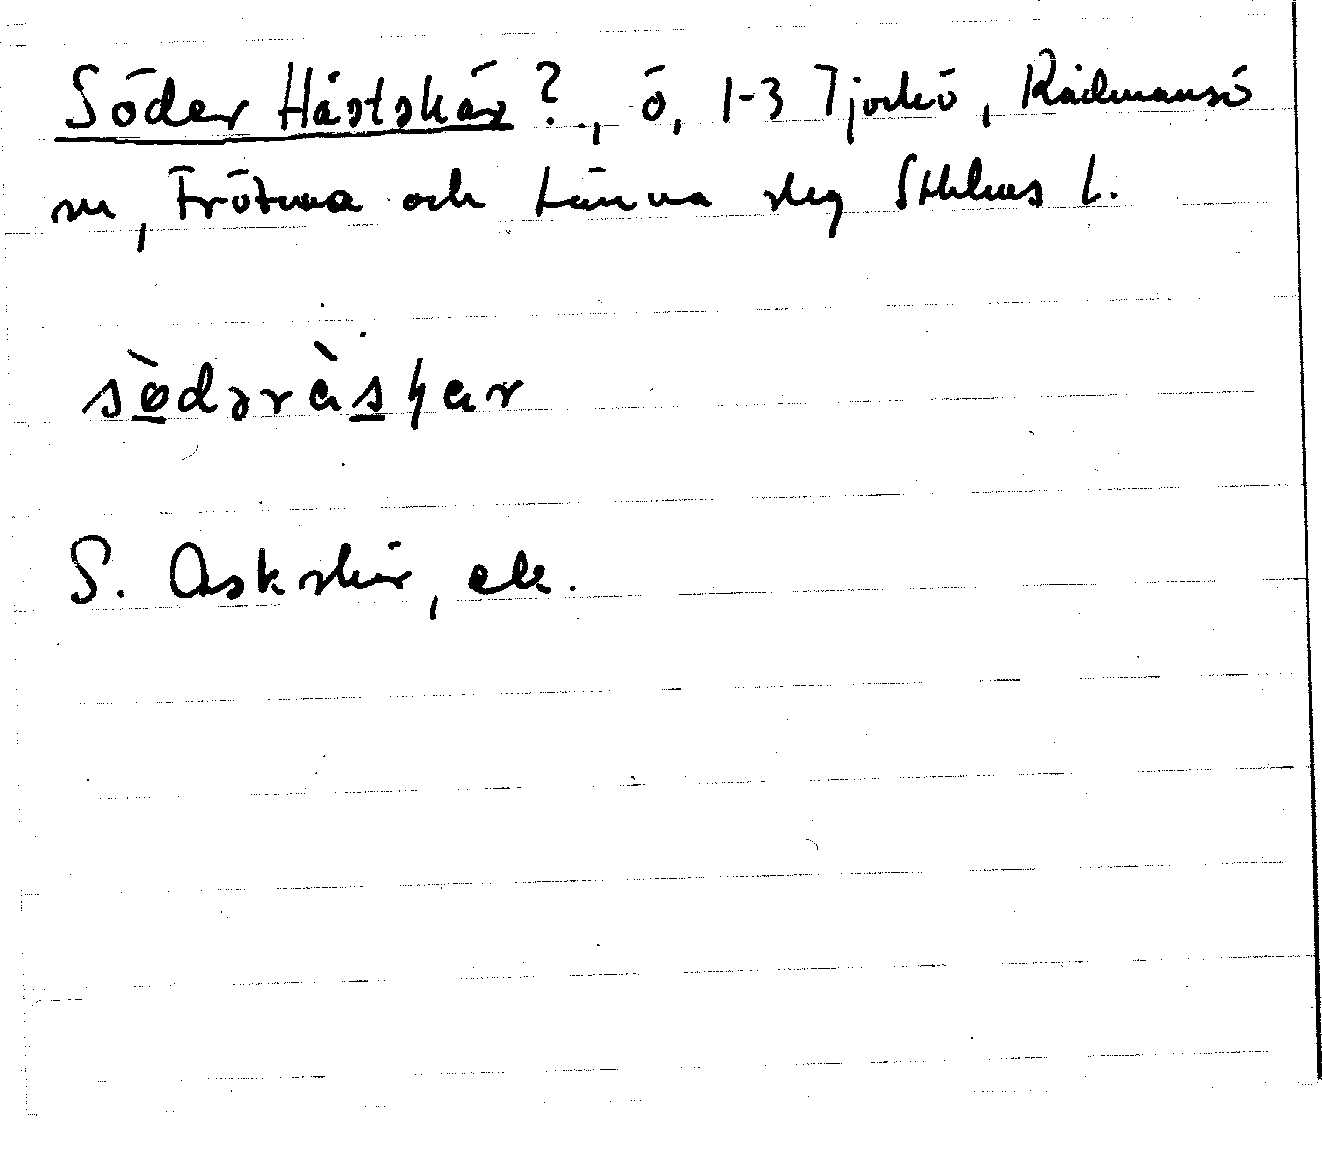 Söder Hästskär?, ö, 1-3 Tjockö, Rådmansö
sn, Frötuna och Länna slg Sthlms l.
sö̀dəràsʞar
S. Askskär, ek.